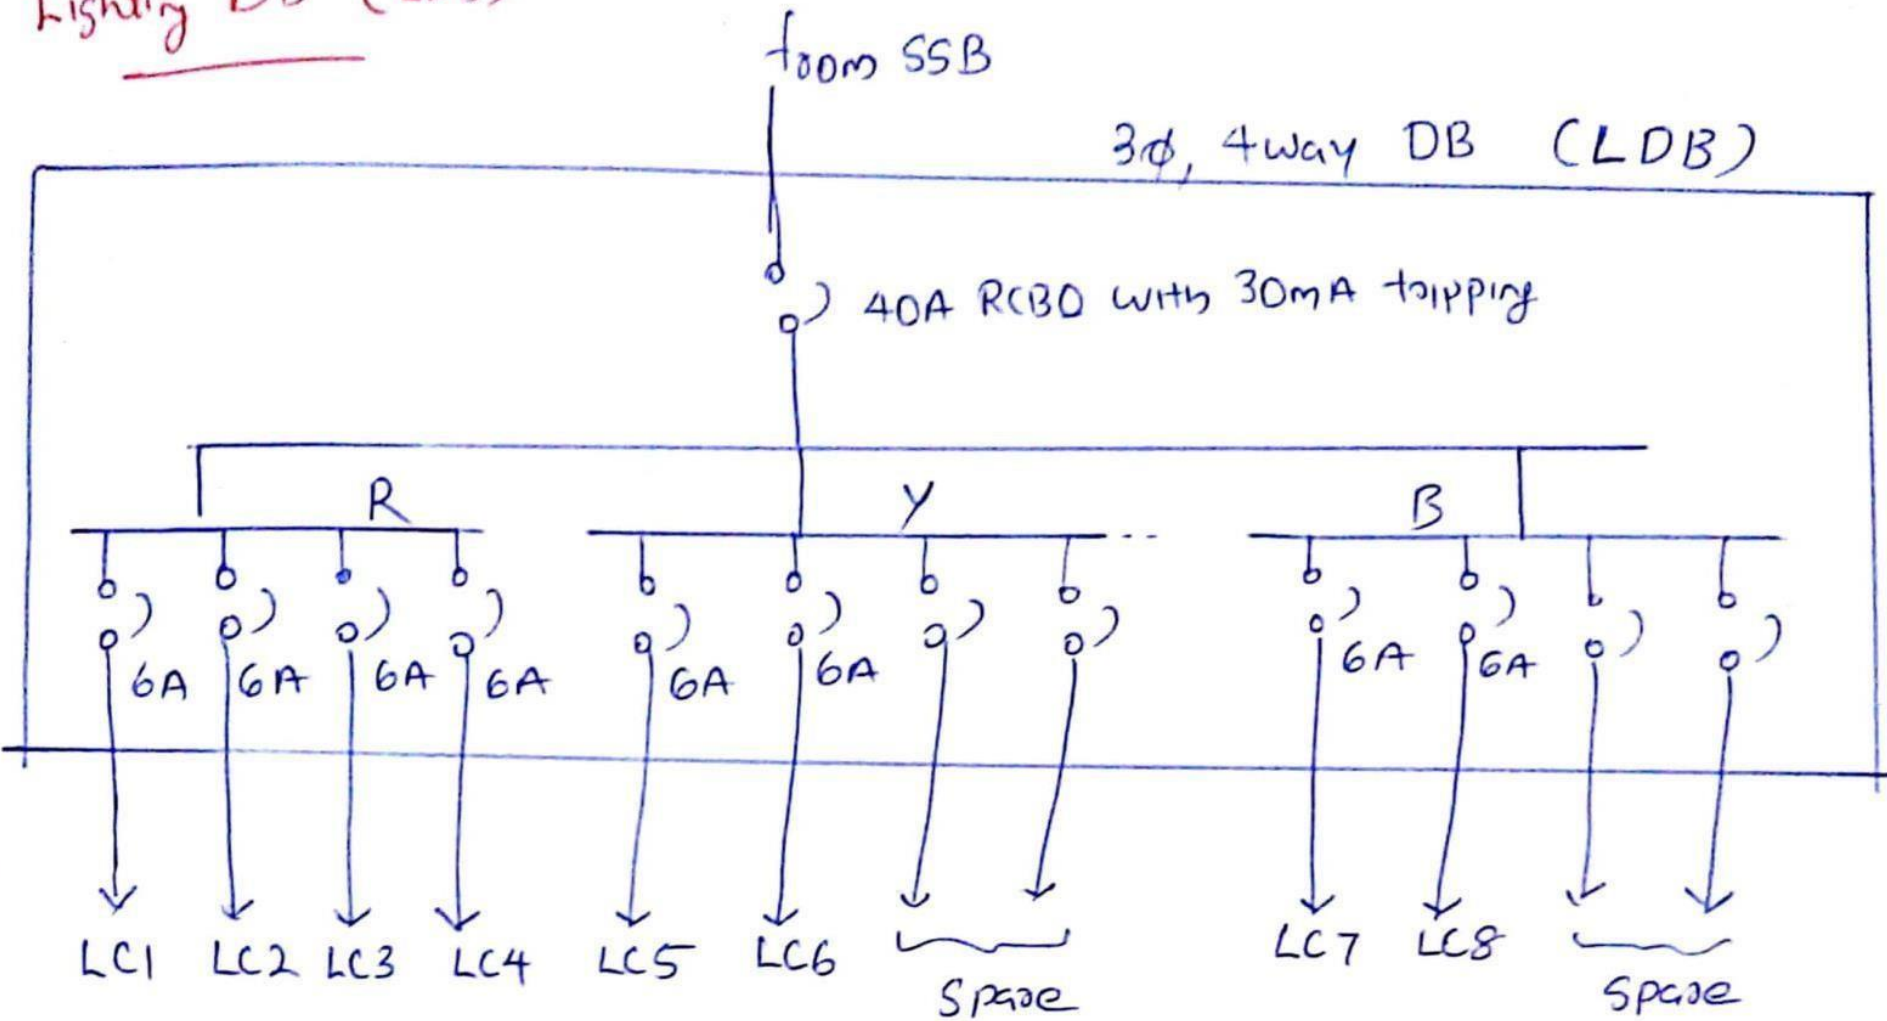 Lighting DB
from SSB
3φ, 4way DB (LDB)
40A RCBO with 30mA tripping
R Y B
6A 6A 6A 6A 6A 6A 6A 6A
LC1 LC2 LC3 LC4 LC5 LC6 LC7 LC8
Spare Spare